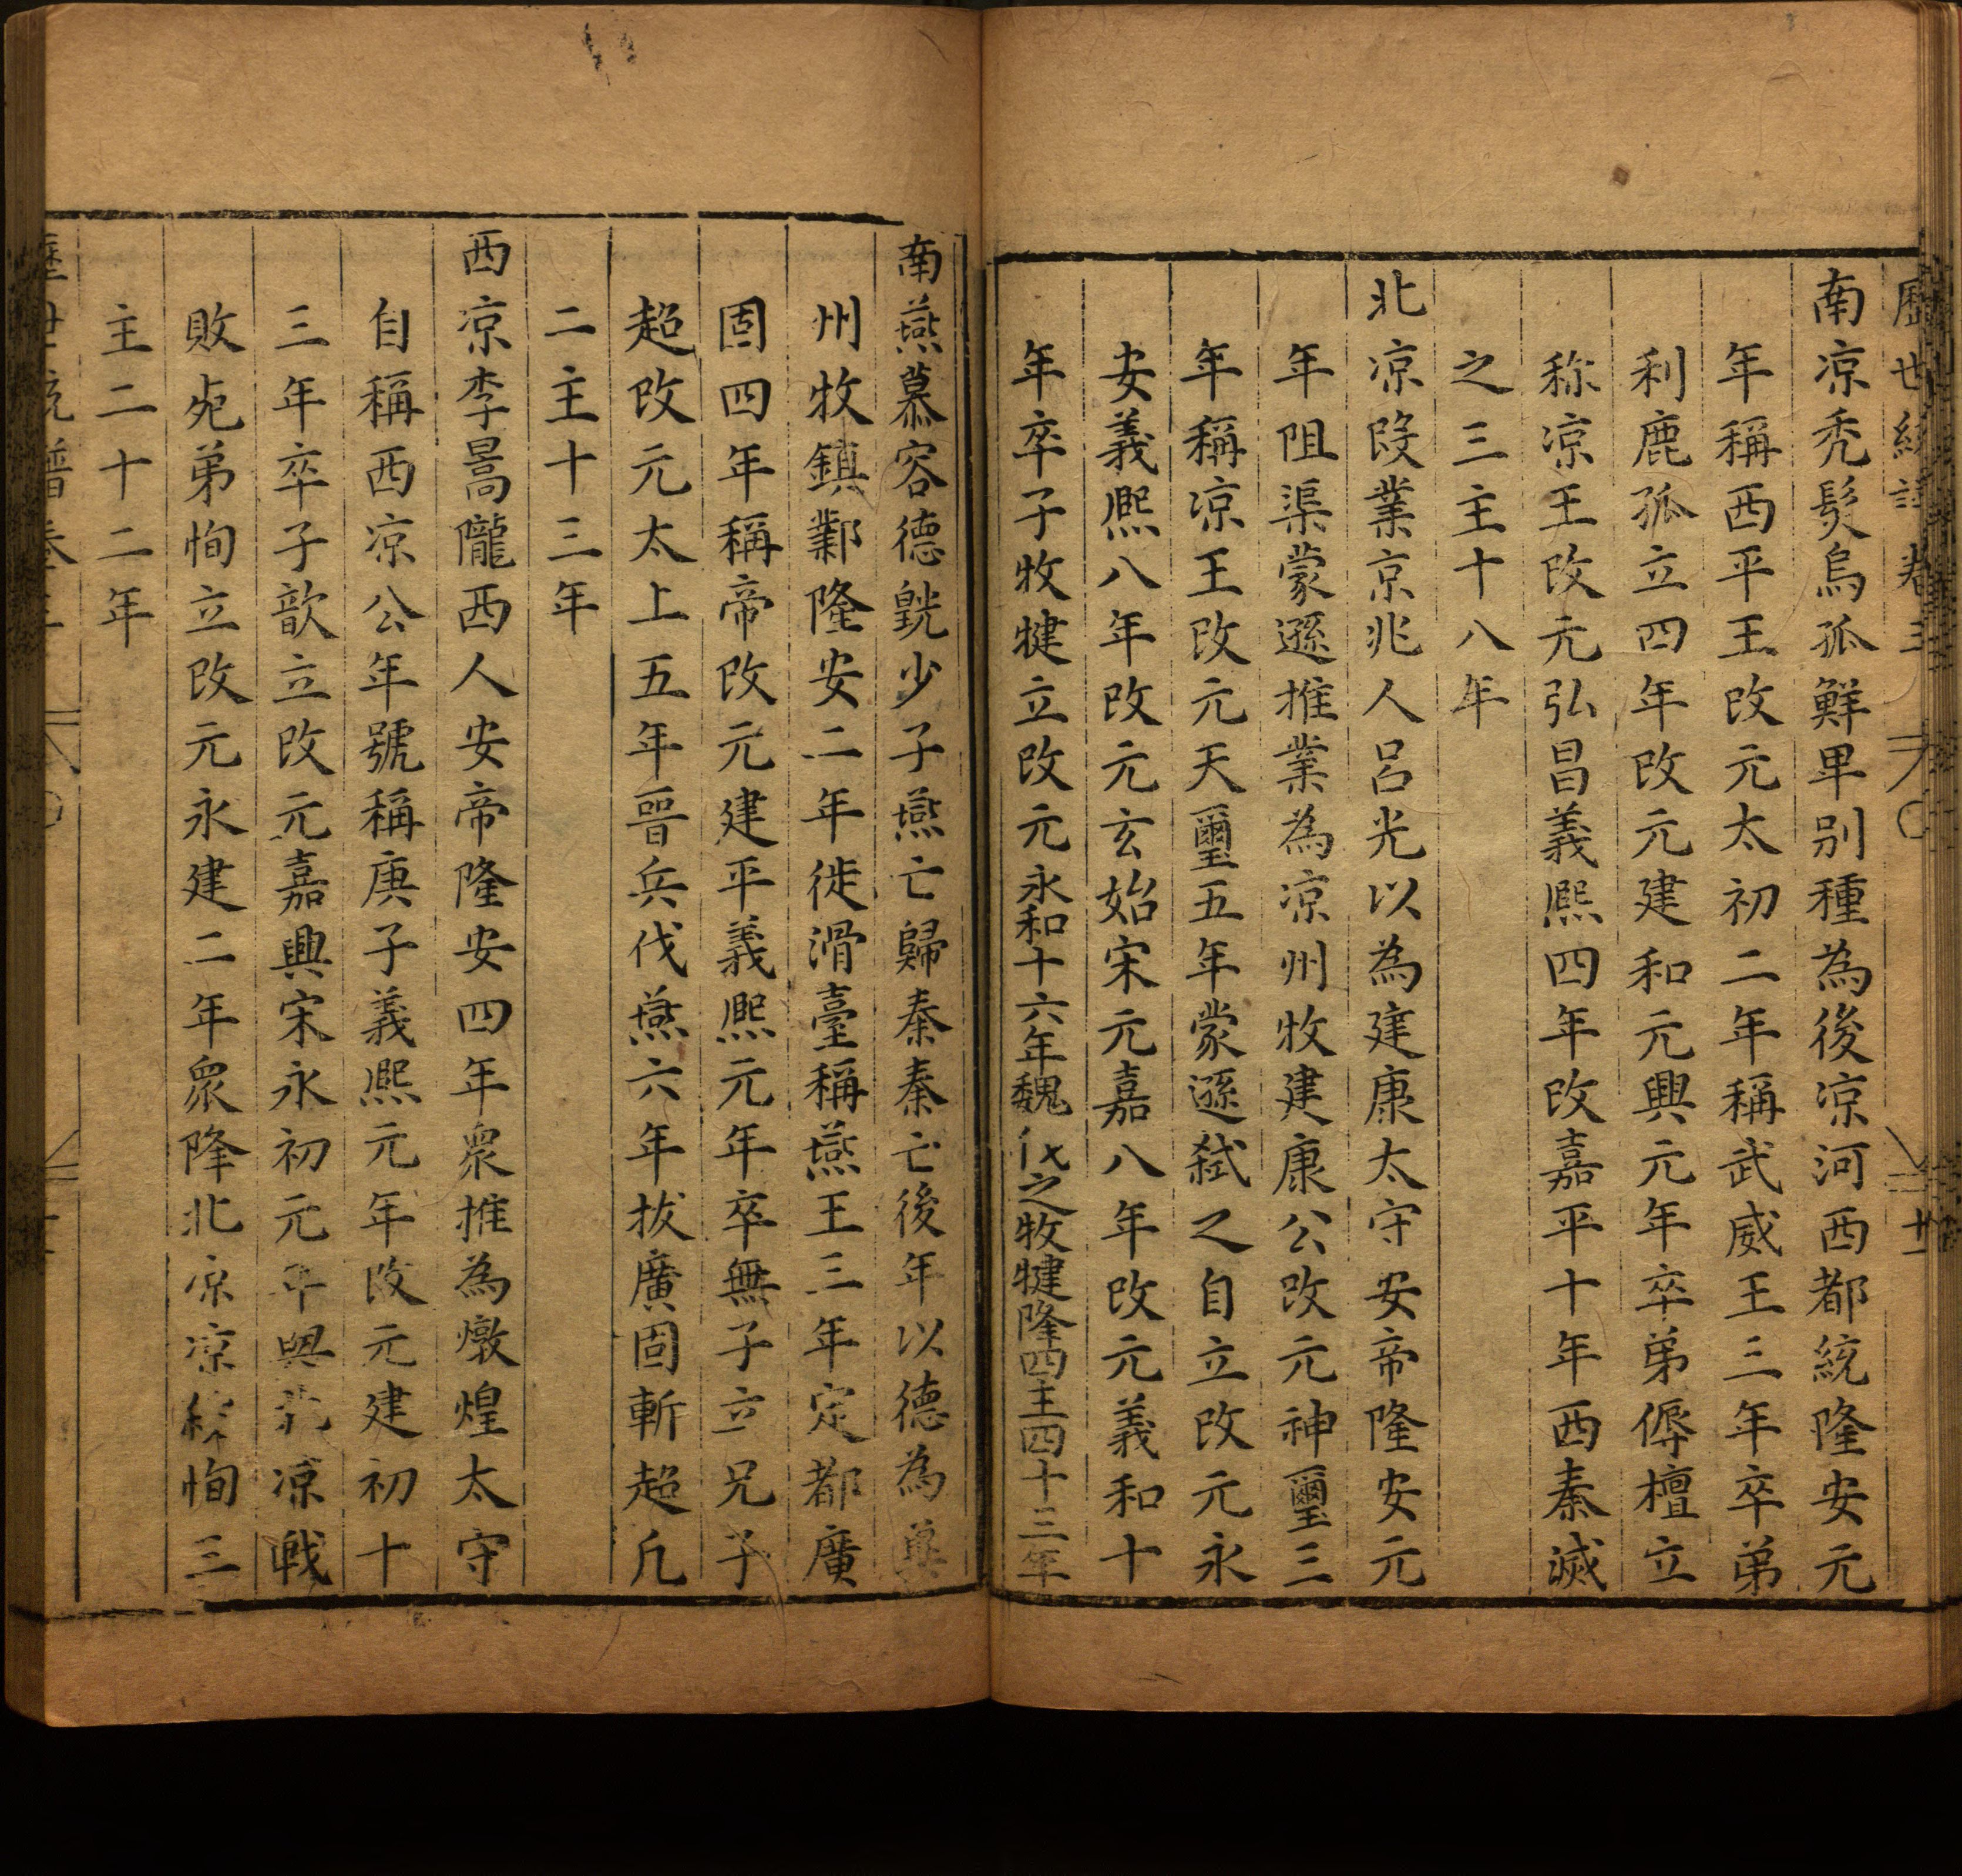 南凉秃髮烏孤鮮卑别種為後凉河西都統隆安元
年稱西平王改元太初二年稱武威王三年卒弟
利鹿孤立四年改元建和元興元年卒弟傉檀立
称凉王改元弘昌義熙四年改嘉平十年西秦滅
之三主十八年
北凉段業京兆人呂光以為建康太守安帝隆安元
年阻渠蒙遜推業為凉州牧建康公改元神璽三
年稱凉王改元天璽五年蒙遜弑之自立改元永
安義熙八年改元玄始宋元嘉八年改元義和十
年卒子牧犍立改元永和十六年魏伐之牧犍降四主四十三年
南燕慕容德皝少子燕亡歸秦秦亡後年以德為兾
州牧鎮鄴隆安二年徙滑臺稱燕王三年定都廣
固四年稱帝改元建平義熙元年卒無子立兄子
超改元太上五年晉兵伐燕六年拔廣固斬超凡
二主十三年
西凉李暠隴西人安帝隆安四年衆推為燉煌太守
自稱西凉公年號稱庚子義熙元年改元建初十
三年卒子歆立改元嘉興宋永初元年與北凉戰
敗死弟恂立改元永建二年衆降北凉凉恂三
主二十二年